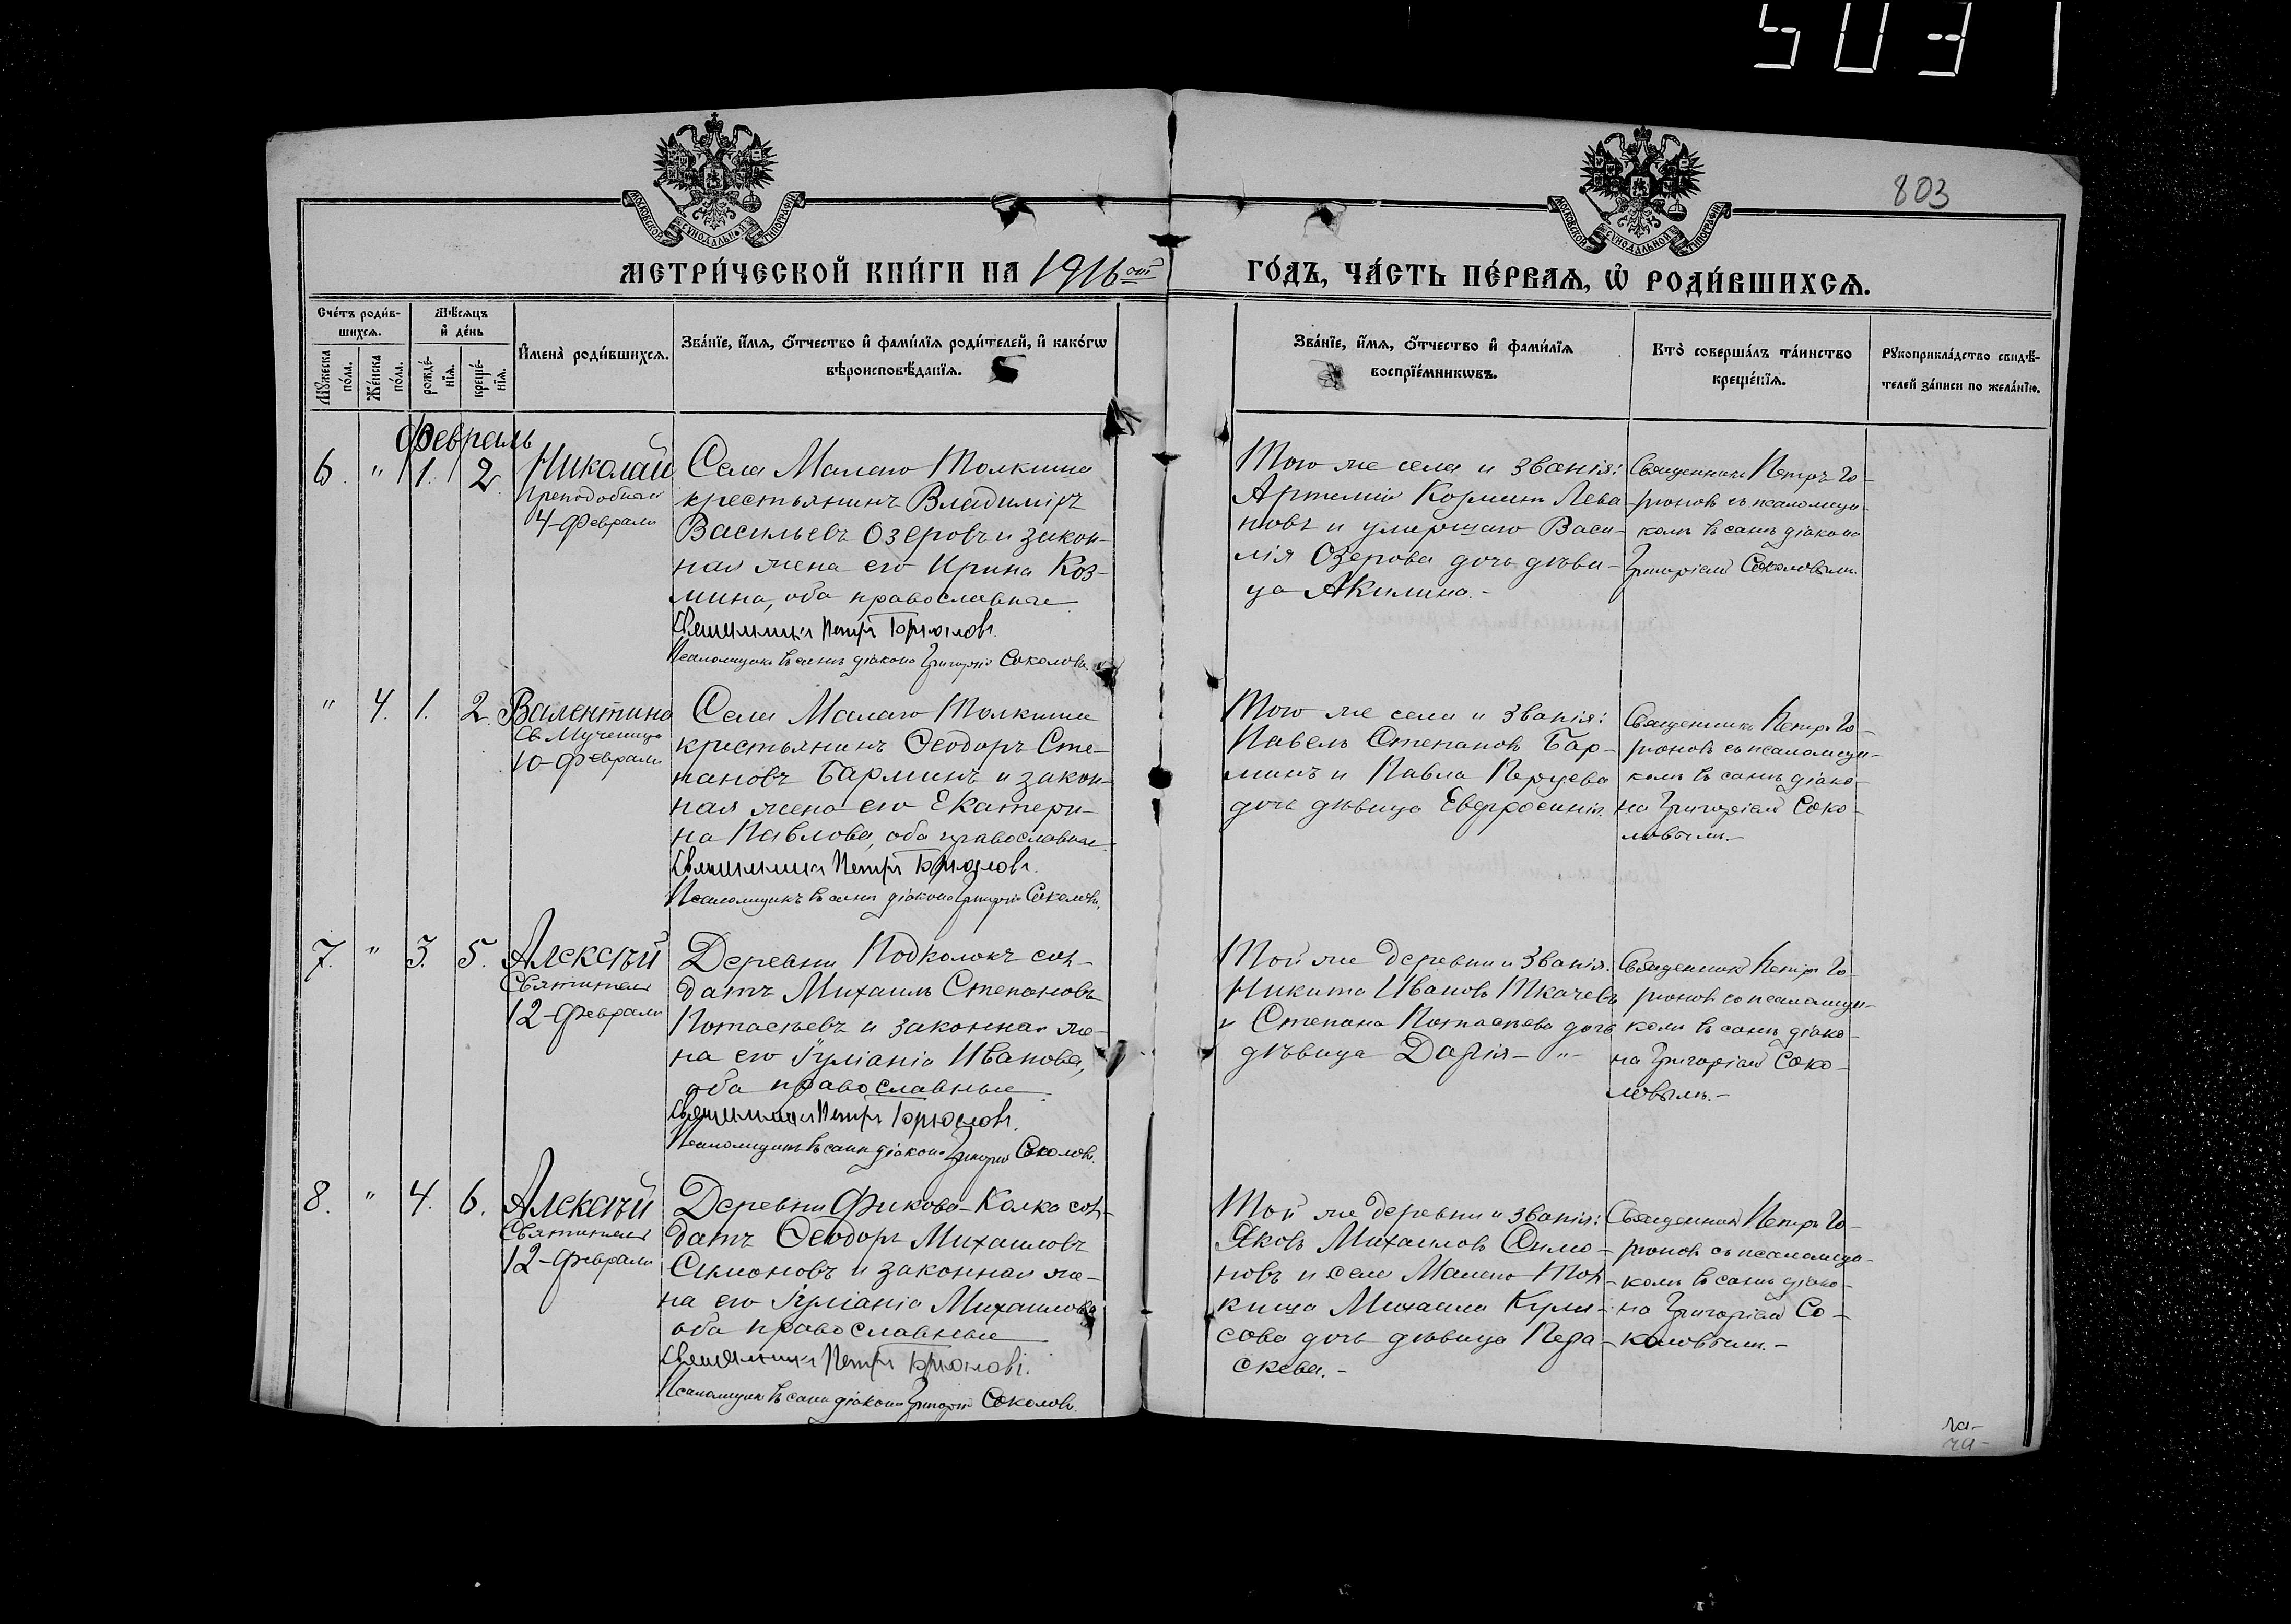 503
803
МОСКОВСКОЙ СѴНОДАЛЬНОЙ ТИПОГРАФІИ
МОСКОВСКОЙ СѴНОДАЛЬНОЙ ТИПОГРАФІИ
МЕТРИ́ЧЕСКОЙ КНИ́ГИ НА 1916 ый
ГО́ДЪ, ЧА́СТЬ ПЕ́РВАѦ, Ѽ РОДИ́ВШИХСѦ.
Сче́тъ роди́в-
шихсѧ.
Мꙋжеска по́ла.
Же́нска по́ла.
Мѣ́сѧцъ
и҆ де́нь
рожде́-
нїѧ.
креще́-
нїѧ.
И҆мена̀ роди́вшихсѧ.
Зва́нїе, и҆́мѧ, ѻ҆́тчество и҆ фами́лїѧ роди́телей, и҆ како́гѡ
вѣроисповѣ́данїѧ.
Зва́нїе, и҆́мѧ, ѻ҆́тчество и҆ фами́лїѧ
воспрїе́мникѡвъ.
Кто̀ соверша́лъ та́инство
креще́нїѧ.
Рꙋкоприкла́дство свидѣ́-
телей за́писи по жела́нїю.
Февраль
6. " 1. 2.
Николай
Преподобнаго
4-Февраля
Села Малаго Толкиша
крестьянинъ Владиміръ
Васильевъ Озеровъ и закон-
ная жена его Ирина Коз-
мина, оба православные
Священникъ Петръ
Псаломщикъ въ санѣ діакона Григорій Соколовъ.
Того же села и званія:
Артемій Лева-
новъ и умершаго Васи-
лія Озерова дочь дѣви-
ца Акилина.-
Священникъ Петръ
съ псаломщи-
комъ въ санѣ діакона
Григоріемъ Соколовымъ.
" 4. 1. 2.
Валентина
Св. Мученица
10-Февраля
Села Малаго Толкиша
крестьянинъ Ѳеодоръ Сте-
пановъ Барминъ и закон-
ная жена его Екатери-
на Павлова, оба православные.
Священникъ Петръ
Псаломщикъ въ санѣ діакона Григорій Соколовъ.
Того же села и званія:
Павелъ Степановъ Бар-
минъ и Павла
дочь дѣвица Евфросинія.
Священникъ Петръ
съ псаломщи-
комъ въ санѣ діако-
на Григоріемъ Соко-
ловымъ.-
7. " 3. 5.
Алексѣй
Святителя
12-Февраля
Деревни Подколокъ сол-
датъ Михаилъ Степановъ
Потасьевъ и законная же-
на его Іуліанія Иванова,
оба православные
Священникъ Петръ
Псаломщикъ въ санѣ діакона Григорій Соколовъ.
Той же деревни и званія:
Никита Ивановъ Ткачевъ
и Степана Потасьева дочь
дѣвица Дарія- "-
Священникъ Петръ
съ псаломщи-
комъ въ санѣ діако-
на Григоріемъ Соко-
ловымъ.-
8. " 4. 6.
Алексѣй
Святителя
12-Февраля
Деревни Фиково-Колка сол-
датъ Ѳеодоръ Михаиловъ
Симоновъ и законная же-
на его Іуліанія Михаилова
оба православные
Священникъ Петръ
Псаломщикъ въ санѣ діакона Григорій Соколовъ.
Той же деревни и званія:
Яковъ Михаиловъ Симо-
новъ и села Малаго Тол-
киша Михаила
дочь дѣвица Пара-
скева.-
Священникъ Петръ
съ псаломщи-
комъ въ санѣ діако-
на Григоріемъ Со-
коловымъ.-